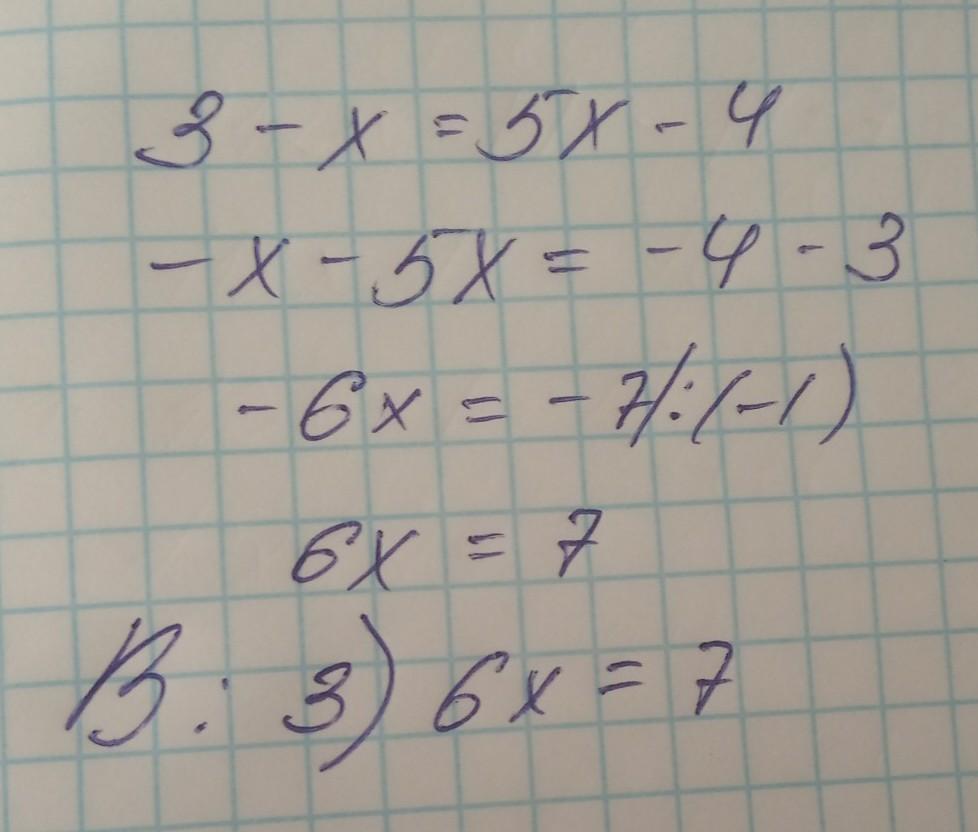 3 - x = 5x - 4
-x - 5x = -4 - 3
-6x = -7/:(-1)
6x = 7
В: 3) 6x = 7